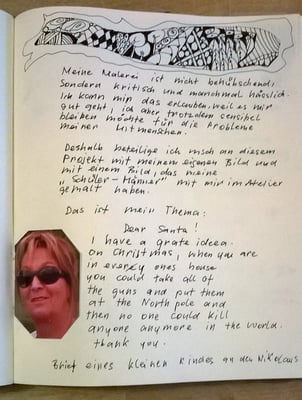 Meine Malerei ist nicht behübschend,
sondern kritisch und manchmal hässlich.
Ich kann mir das erlauben, weil es mir
gut geht, ich aber trotzdem sensibel
bleiben möchte für die Probleme
meiner Mitmenschen.
Deshalb beteilige ich mich an diesem
Projekt mit meinem eigenen Bild und
mit einem Bild, das meine
"Schüler-Männer" mit mir im Atelier
gemalt haben.
Das ist mein Thema:
Dear Santa!
I have a grate ideea.
On Christmas, when you are
in every ones house
you could take all of
the guns and put them
at the North pole and
then no one could kill
anyone anymore in the world.
thank you.
Brief eines kleinen Kindes an den Nikolaus